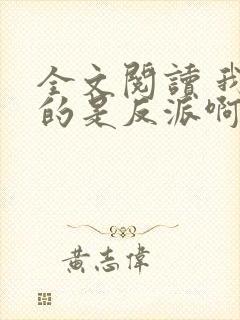 全文閱讀 我
的是反派啊
黃志偉